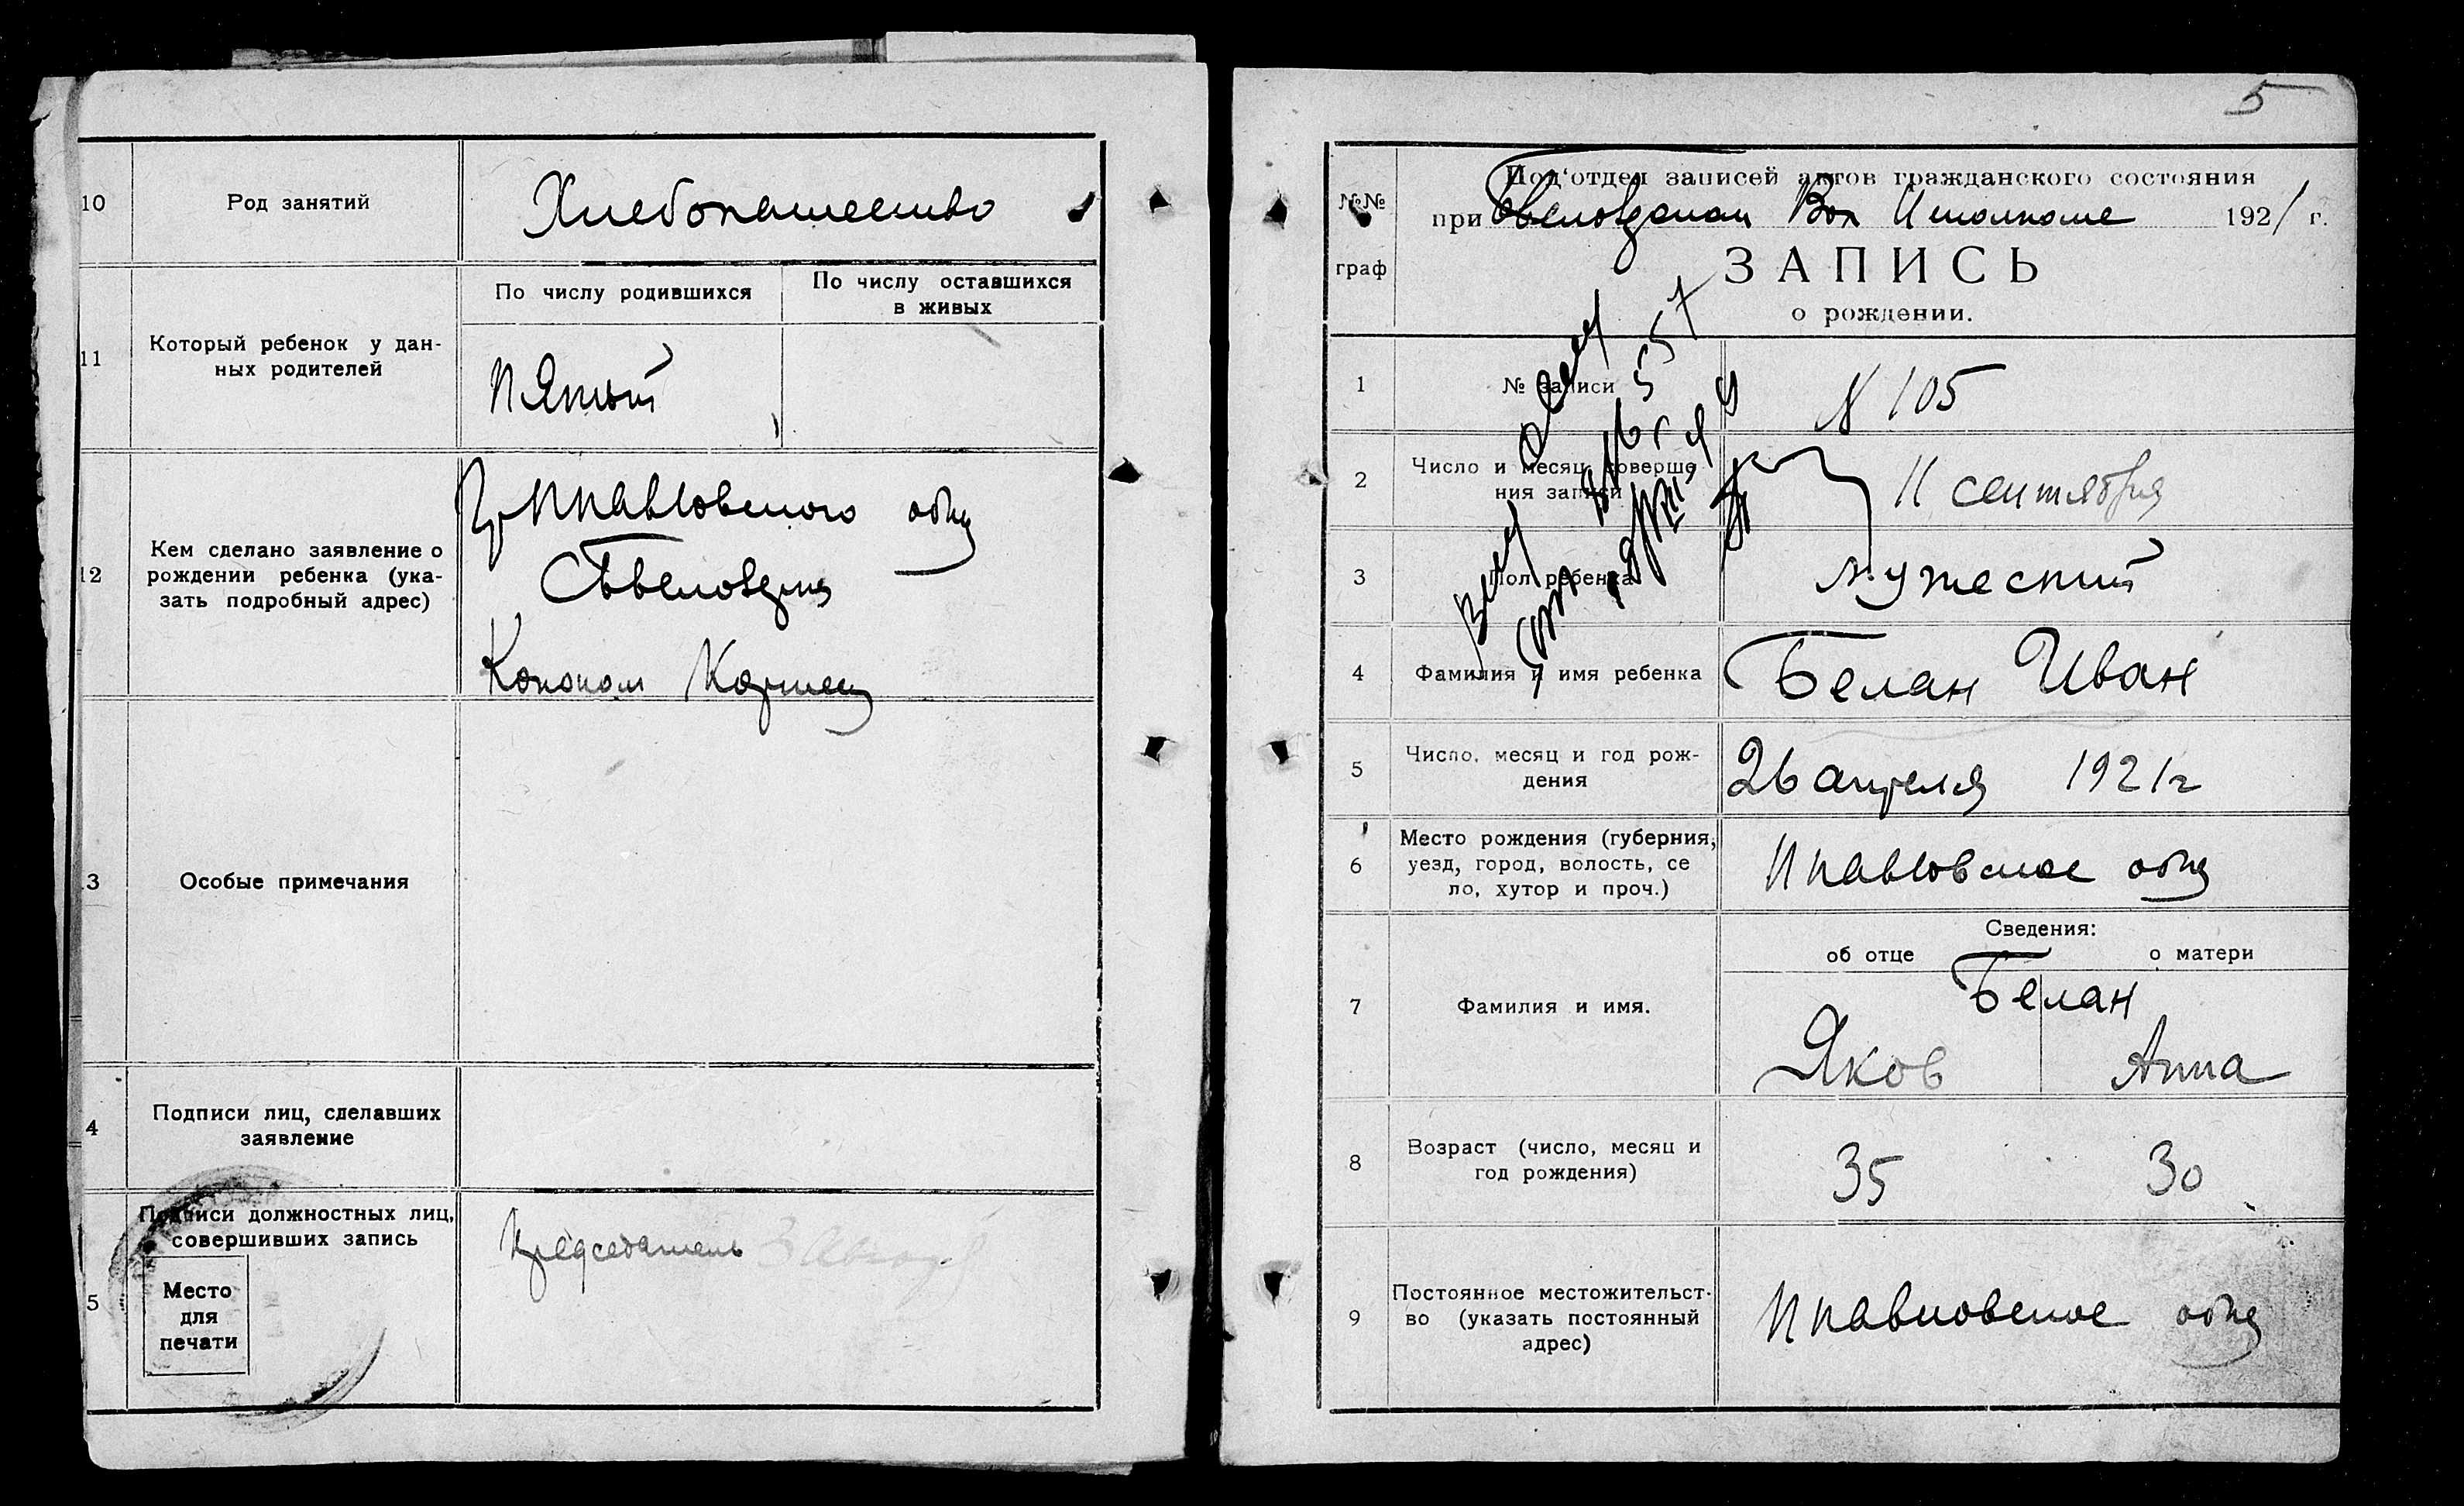 10
Род занятий
Хлебопашество
11
Который ребенок у дан-
ных родителей
По числу родившихся
По числу оставшихся
в живых
пятый
12
Кем сделано заявление о
рождении ребенка (ука-
зать подробный адрес)
общ
Кононом
3
Особые примечания
4
Подписи лиц, сделавших
заявление
5
Подписи должностных лиц,
совершивших запись
Место
для
печати
Председатель
5
№№
граф
Под'отдел записей актов гражданского состояния
при Вол Исполкоме 1921 г.
ЗАПИСЬ
о рождении.
1
№ записи
N 105
2
Число и месяц соверше
ния записи
11 сентября
3
Пол ребенка
мужеский
4
Фамилия и имя ребенка
Белан Иван
5
Число, месяц и год рож-
дения
26 апреля 1921 г
6
Место рождения (губерния,
уезд, город, волость, се
ло, хутор и проч.)
общ
Сведения:
об отце
о матери
7
Фамилия и имя.
Белан
Яков
Анна
8
Возраст (число, месяц и
год рождения)
35
30
9
Постоянное местожительст-
во (указать постоянный
адрес)
общ